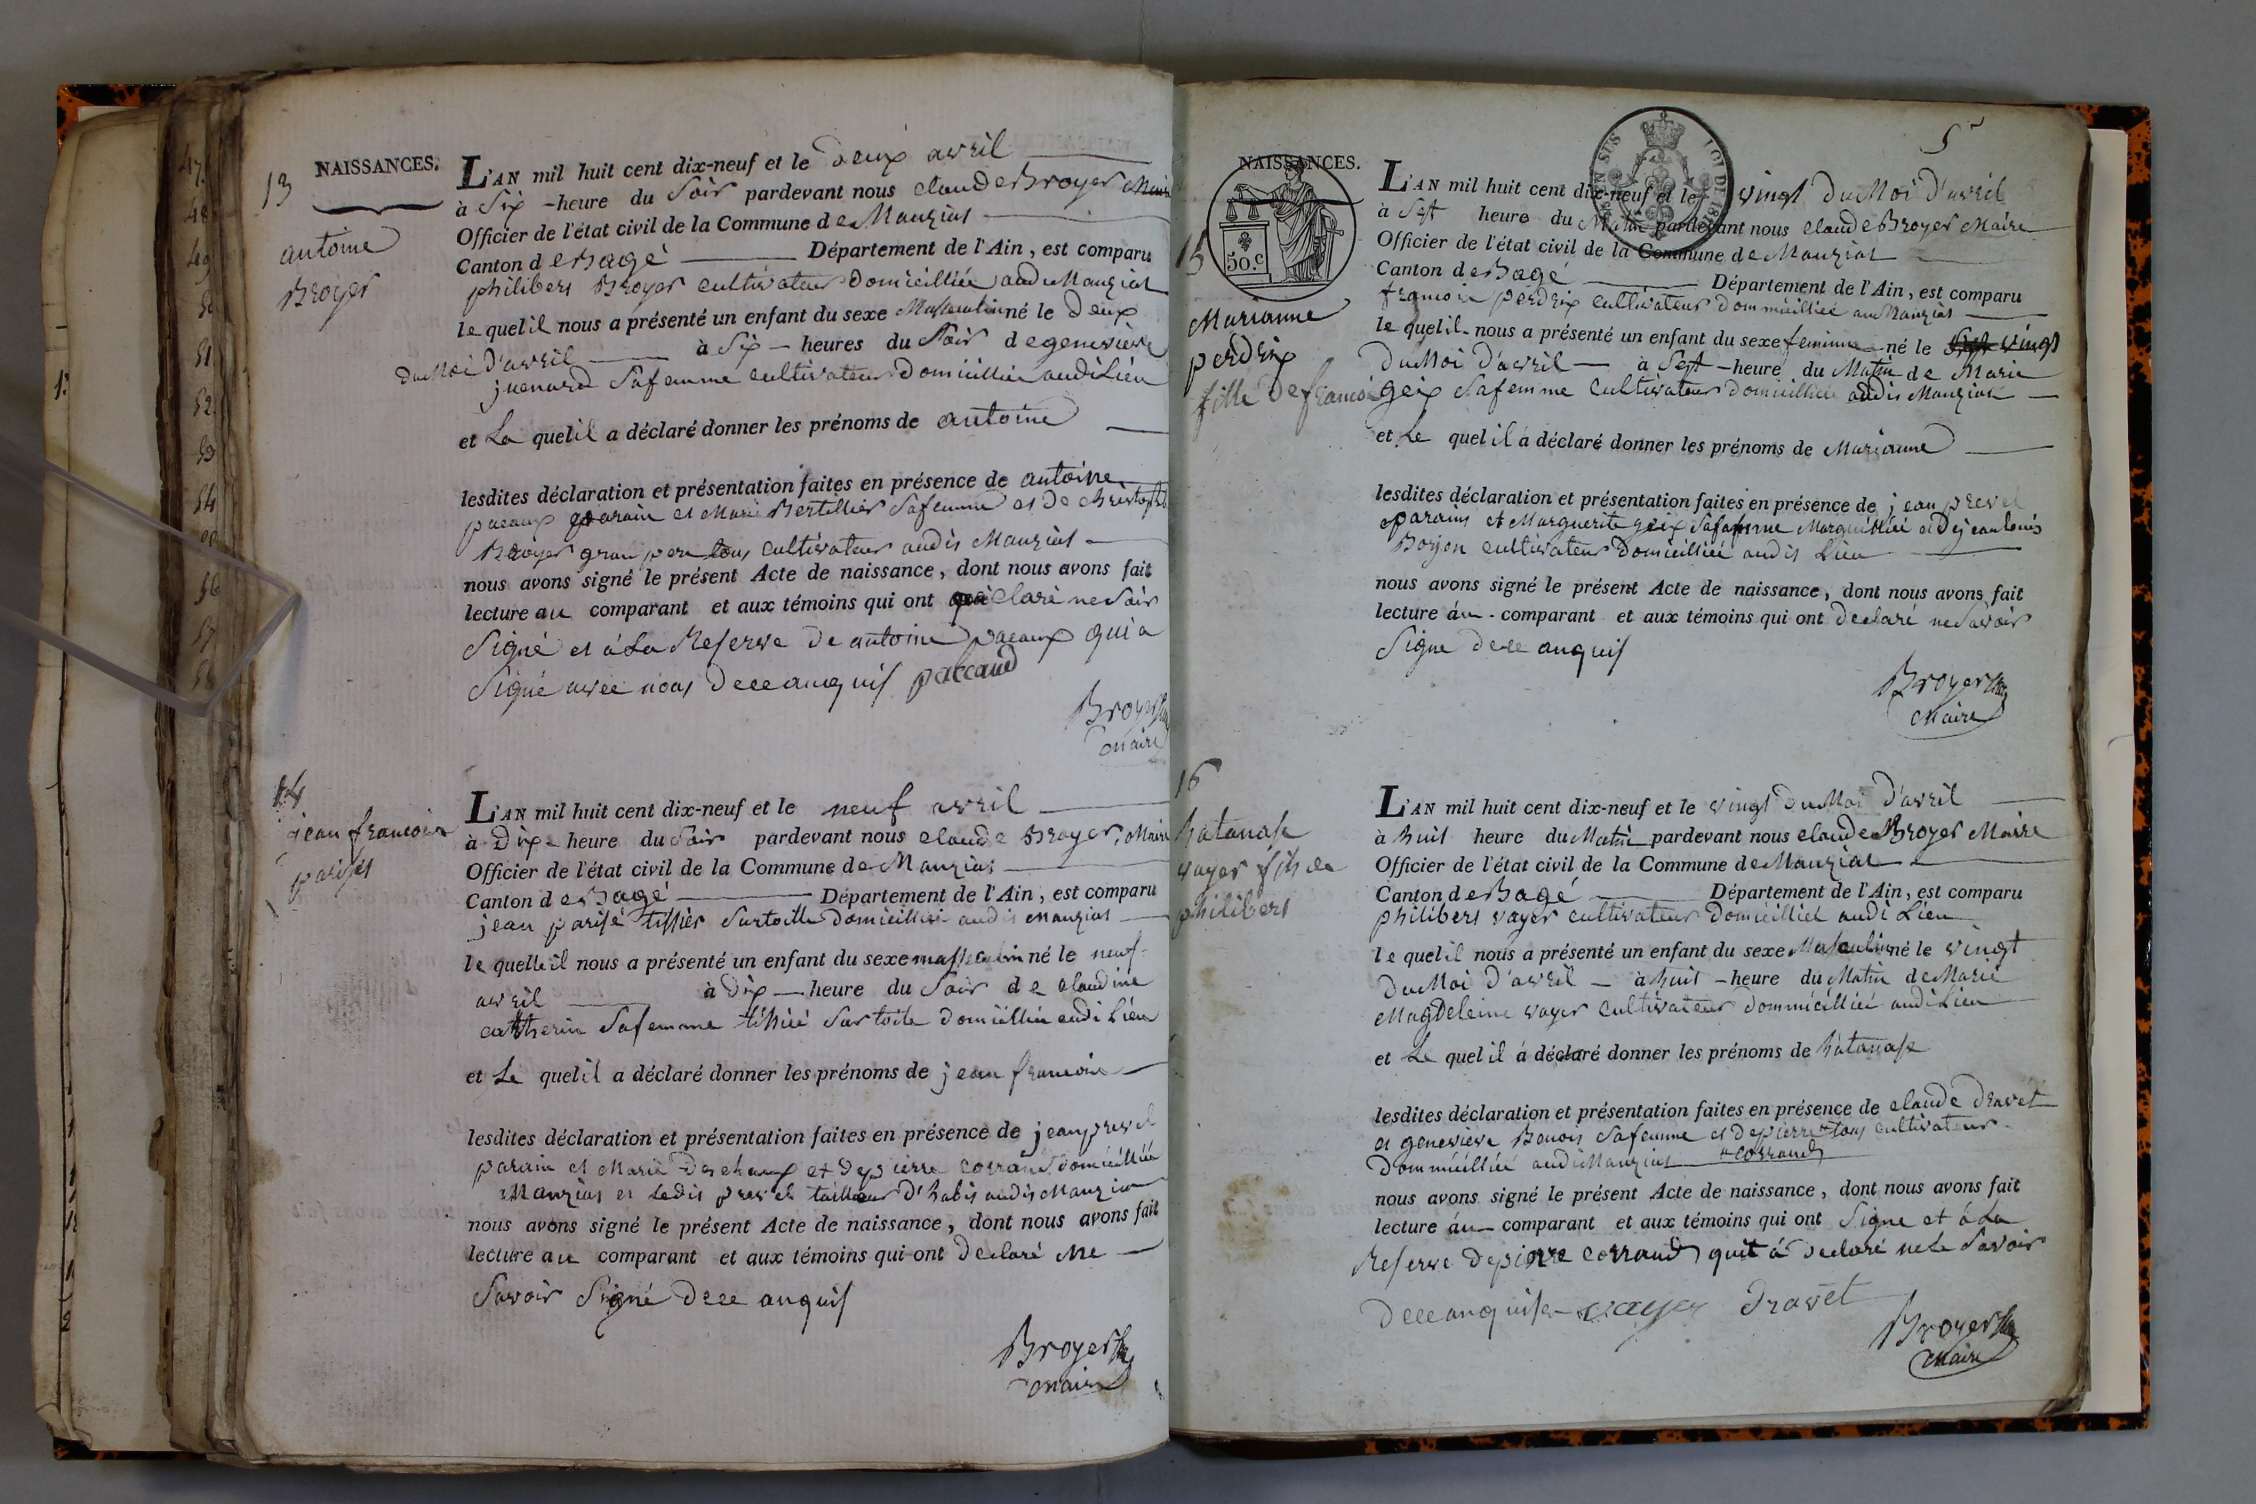 NAISSANCES.
13
antoine
Broyer
L'AN mil huit cent dix-neuf et le deux avril
à Six heure du Soir pardevant nous claude Broyer Maire
Officier de l'état civil de la Commune de Manziat
Canton de Bagé Département de l'Ain, est comparu
philibert Broyer cultivateur domicilliée audi Manziat
le quel il nous a présenté un enfant du sexe Masculin né le deux
du Moi d'avril à Six heures du Soir de genevieve
juenard Safemme cultivateur domicillié audi Lieu
et La quel il a déclaré donner les prénoms de antoine
lesdites déclaration et présentation faites en présence de antoine
pacaux parain et Marie Bertillier Safemme et de Christophe
Broyer gran pere tous cultivateur audit Manziat
nous avons signé le présent Acte de naissance, dont nous avons fait
lecture au comparant et aux témoins qui ont déclaré ne Savoir
Signé et à La Reserve de antoine pacaux qui a
Signé avec nous de ce anquis paccaud
Broyer
Maire
14
jean francois
parisés
L'AN mil huit cent dix-neuf et le neuf avril
à Dix heure du Soir pardevant nous claude Broyer, Maire
Officier de l'état civil de la Commune de Manziat
Canton de Bagé Département de l'Ain, est comparu
jean parisé tissier Surtoille domicillié audit Manziat
le quel il nous a présenté un enfant du sexe masseculin né le neuf
avril à Dix heure du Soir de claudine
catherin Safemme tissié Sur toile domicillié audi Lieu
et Le quel il a déclaré donner les prénoms de jean francois
lesdites déclaration et présentation faites en présence de jean prevel
parain et Marie Deschaux et de pierre corrand domicillié
Manziat et Ledit prevel tailleur d'habit audit Manziat
nous avons signé le présent Acte de naissance, dont nous avons fait
lecture au comparant et aux témoins qui ont declaré Ne
Savoir Signé de ce anquis
Broyer
Maire
5
NAISSANCES.
50.c
15
Marianne
perdrix
fille de francoi
L'AN mil huit cent dix-neuf et le vingt du Moi d'avril
à Sept heure du Matin pardevant nous claude Broyer Maire
Officier de l'état civil de la Commune de Manziat
Canton de Bagé Département de l'Ain, est comparu
francois perdrix cultivateur dommicilliée au Manziat
le quel il nous a présenté un enfant du sexe feminine né le vingt
du Moi d'avril à Sept heure du Matin de Marie
geix Safemme Cultivateur domicillié audit Manziat
et Le quel il á déclaré donner les prénoms de Marianne
lesdites déclaration et présentation faites en présence de jean prevel
parains et Marguerite geix Safemme Marguillié et de jean louis
Borjon cultivateur domicillié audit Lieu
nous avons signé le présent Acte de naissance, dont nous avons fait
lecture áu comparant et aux témoins qui ont declaré ne Savoir
Signe de ce anquis
Broyer
Maire
16
hatanase
vayer fils de
philibert
L'AN mil huit cent dix-neuf et le vingt du Moi d'avril
à huit heure du Matin pardevant nous claude Broyer Maire
Officier de l'état civil de la Commune de Manziat
Canton de Bagé Département de l'Ain, est comparu
philibert vayer cultivateur domicilliel audi Lieu
le quel il nous a présenté un enfant du sexe Masculin né le vingt
du Moi d'avril à huit heure du Matin de Marie
Magdeleine vayer cultivateur dommicillié audi Lieu
et Le quel il á déclaré donner les prénoms de hatanase
lesdites déclaration et présentation faites en présence de claude dravet
et genevieve Benois Safemme et de pierre + tous cultivateur
Dommicillié audi Manziat + corrand
nous avons signé le présent Acte de naissance, dont nous avons fait
lecture áu comparant et aux témoins qui ont Signe et á La
Reserve de pierre corrand quit á declaré ne Le Savoir
de ce anquise vayer Dravet
Broyer
Maire